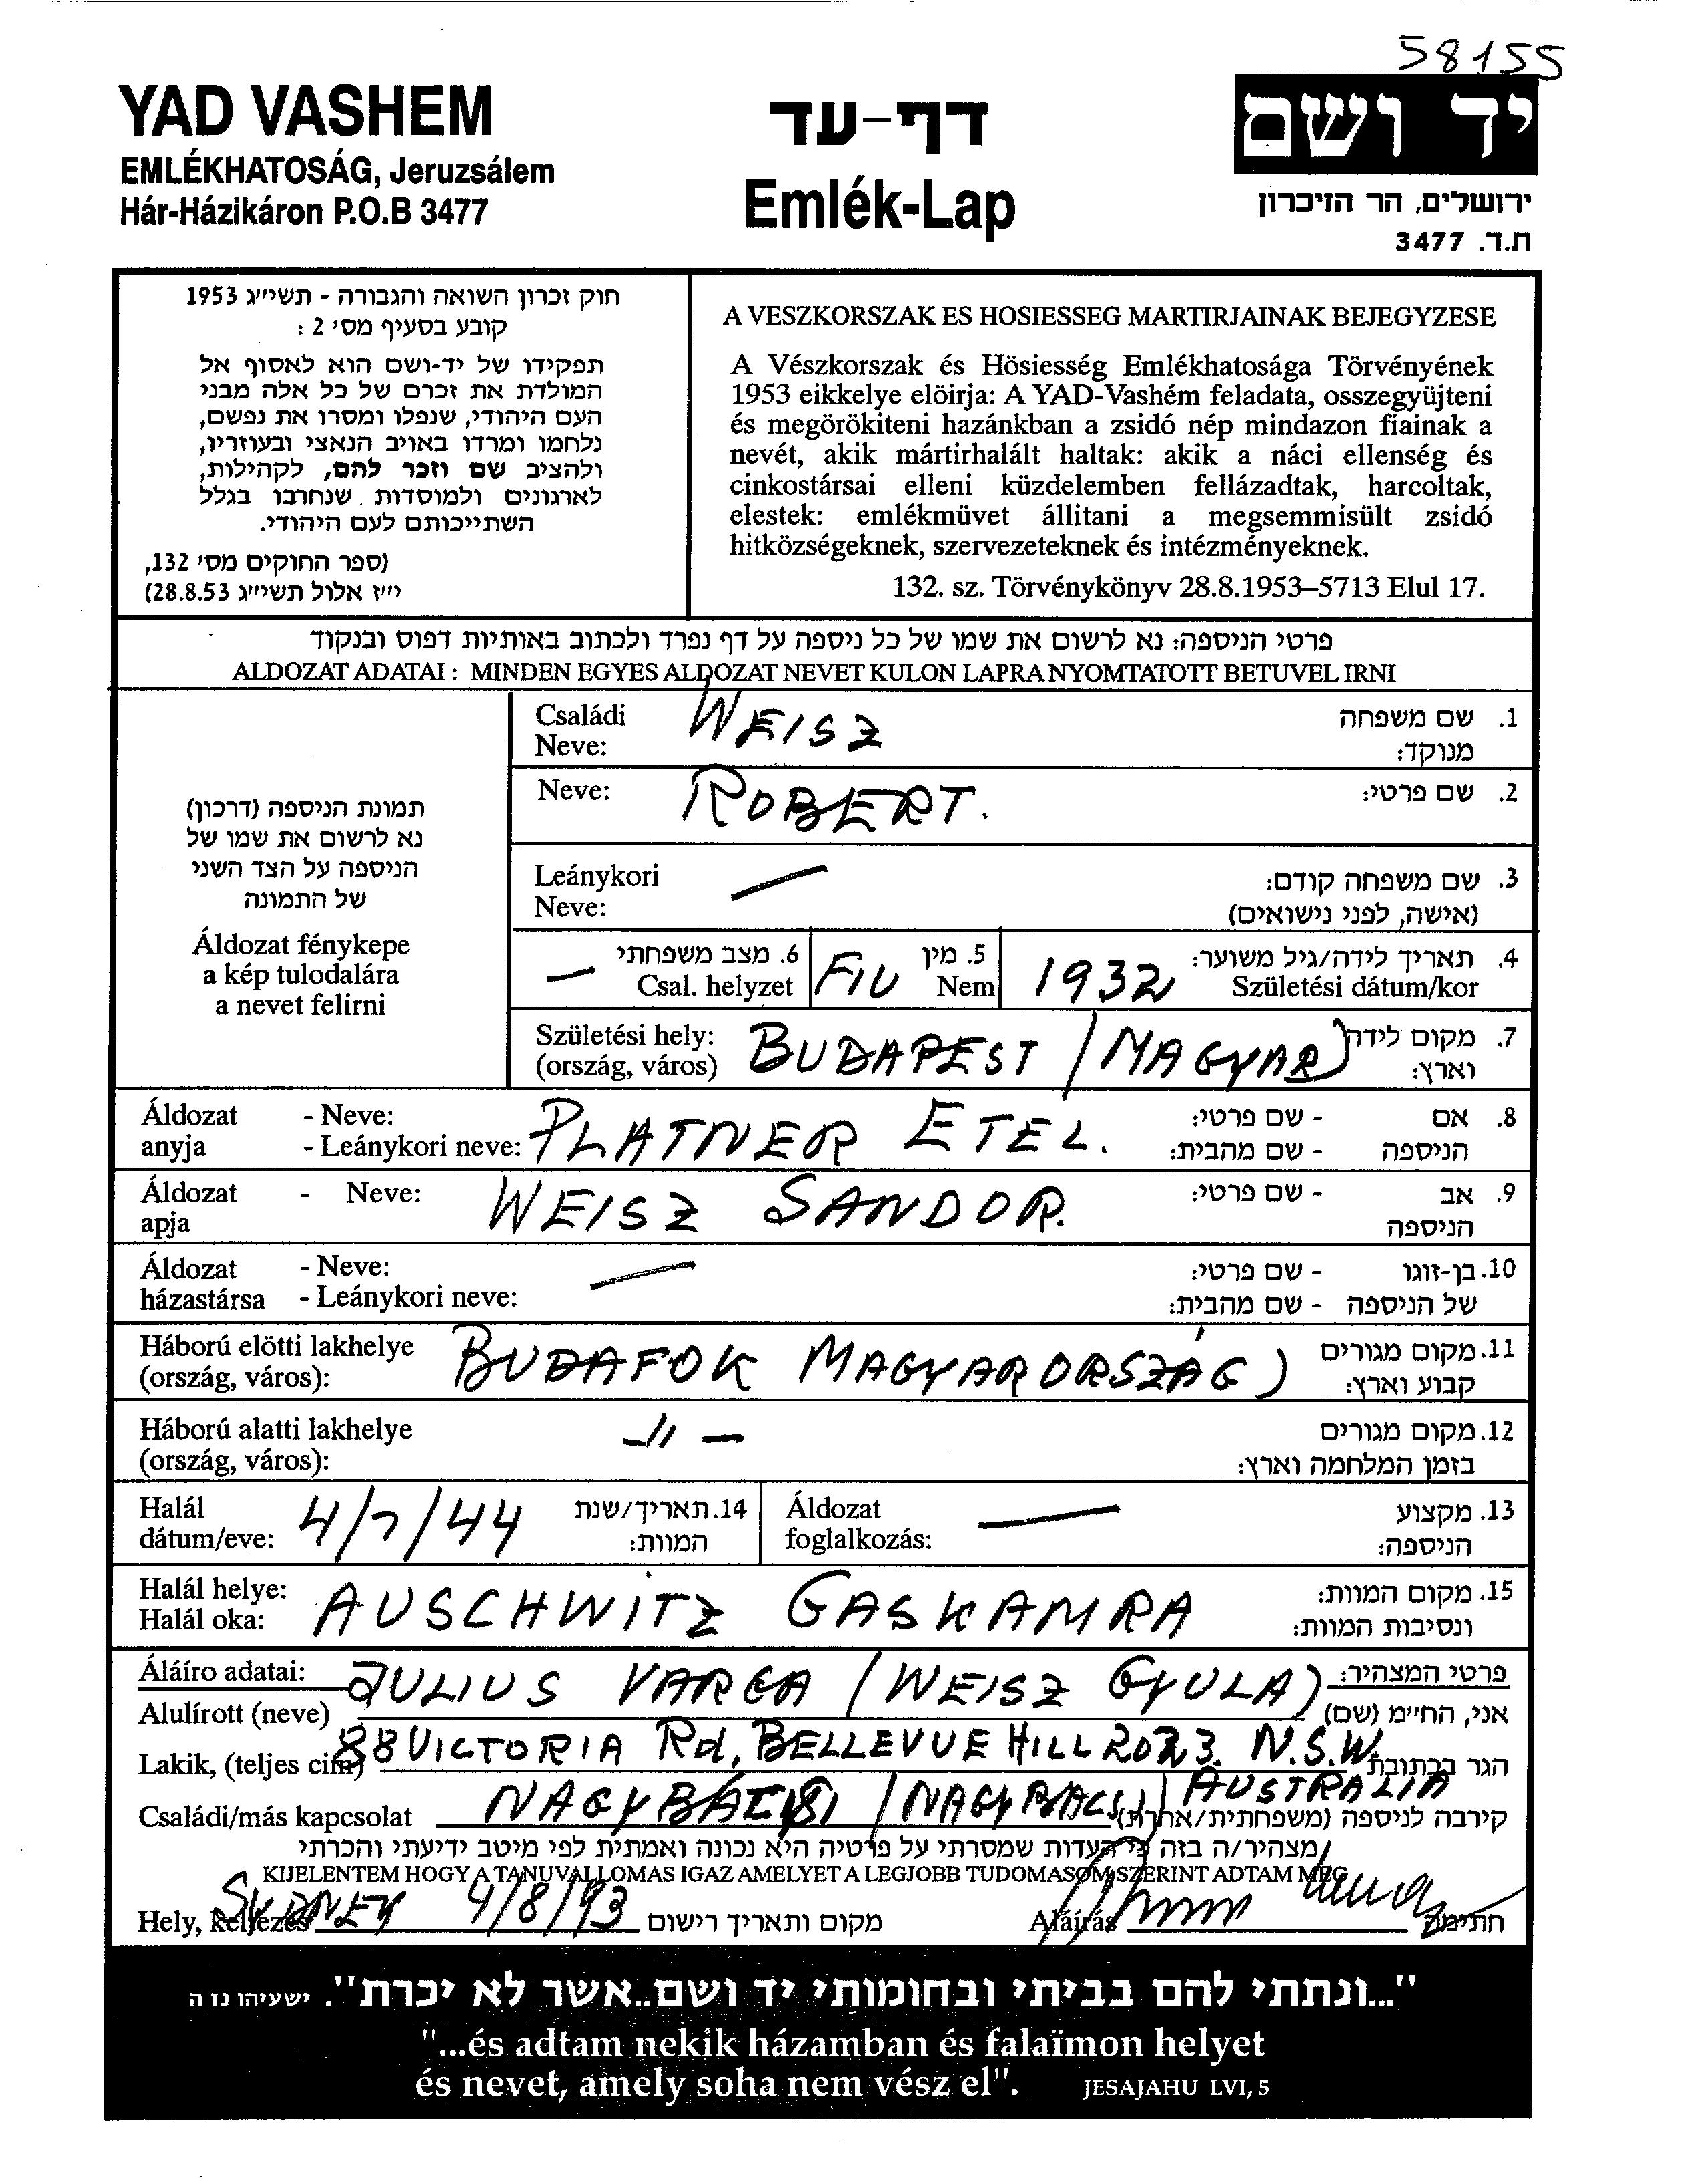 58155
YAD VASHEM
EMLÉKHATOSÁG, Jeruzsálem
Hár-Házikáron P.O.B 3477
דף-עד
Emlék-Lap
יד ושם
ירושלים, הר הזיכרון
ת.ד. 3477
חוק זכרון השואה והגבורה - תשי״ג 1953
קובע בסעיף מס׳ 2 :
תפקידו של יד-ושם הוא לאסוף אל
המולדת את זכרם של כל אלה מבני
העם היהודי, שנפלו ומסרו את נפשם,
נלחמו ומרדו באויב הנאצי ובעוזריו,
ולהציב שם וזכר להם, לקהילות,
לארגונים ולמוסדות שנחרבו בגלל
השתייכותם לעם היהודי.
(ספר החוקים מס׳ 132,
י״ז אלול תשי״ג 28.8.53)
A VESZKORSZAK ES HOSIESSEG MARTIRJAINAK BEJEGYZESE
A Vészkorszak és Hösiesség Emlékhatosága Törvényének
1953 eikkelye elöirja: A YAD-Vashém feladata, osszegyüjteni
és megörökiteni hazánkban a zsidó nép mindazon fiainak a
nevét, akik mártirhalált haltak: akik a náci ellenség és
cinkostársai elleni küzdelemben fellázadtak, harcoltak,
elestek: emlékmüvet állitani a megsemmisült zsidó
hitközségeknek, szervezeteknek és intézményeknek.
132. sz. Törvénykönyv 28.8.1953–5713 Elul 17.
פרטי הניספה: נא לרשום את שמו של כל ניספה על דף נפרד ולכתוב באותיות דפוס ובנקוד
ALDOZAT ADATAI : MINDEN EGYES ALDOZAT NEVET KULON LAPRA NYOMTATOTT BETUVEL IRNI
תמונת הניספה (דרכון)
נא לרשום את שמו של
הניספה על הצד השני
של התמונה
Áldozat fénykepe
a kép tulodalára
a nevet felirni
Családi Neve: WEISZ 1. שם משפחה מנוקד:
Neve: ROBERT. 2. שם פרטי:
Leánykori Neve: — 3. שם משפחה קודם: (אישה, לפני נישואים)
— 6. מצב משפחתי Csal. helyzet FIU 5. מין Nem 1932 4. תאריך לידה/גיל משוער: Születési dátum/kor
Születési hely: (ország, város) BUDAPEST (MAGYAR) 7. מקום לידה וארץ:
Áldozat anyja - Neve: - Leánykori neve: PLATNER ETEL. 8. אם הניספה - שם פרטי: - שם מהבית:
Áldozat apja - Neve: WEISZ SANDOR. 9. אב הניספה - שם פרטי:
Áldozat házastársa - Neve: - Leánykori neve: — 10. בן-זוגו של הניספה - שם פרטי: - שם מהבית:
Háború elötti lakhelye (ország, város): BUDAFOK MAGYARORSZÁG) 11. מקום מגורים קבוע וארץ:
Háború alatti lakhelye (ország, város): -11- 12. מקום מגורים בזמן המלחמה וארץ:
Halál dátum/eve: 4/7/44 14. תאריך/שנת המוות: Áldozat foglalkozás: — 13. מקצוע הניספה:
Halál helye: Halál oka: AUSCHWITZ GASKAMRA 15. מקום המוות: ונסיבות המוות:
Áláíro adatai: JULIUS VARGA (WEISZ GYULA) פרטי המצהיר:
Alulírott (neve) אני, הח״מ (שם)
Lakik, (teljes cim) 88 VICTORIA Rd, BELLEVUE HILL 2023. N.S.W. AUSTRALIA הגר בכתובת
Családi/más kapcsolat NAGYBÁCSI (NAGYBACSI) קירבה לניספה (משפחתית/אחרת)
מצהיר/ה בזה כי העדות שמסרתי על פרטיה היא נכונה ואמתית לפי מיטב ידיעתי והכרתי
KIJELENTEM HOGY A TANUVALLOMAS IGAZ AMELYET A LEGJOBB TUDOMASOM SZERINT ADTAM MEG
Hely, kelfezés SYDNEY 4/8/93 מקום ותאריך רישום Aláírás חתימה
"...ונתתי להם בביתי ובחומותי יד ושם..אשר לא יכרת". ישעיהו נז ה
"...és adtam nekik házamban és falaïmon helyet
és nevet, amely soha nem vész el". JESAJAHU LVI, 5